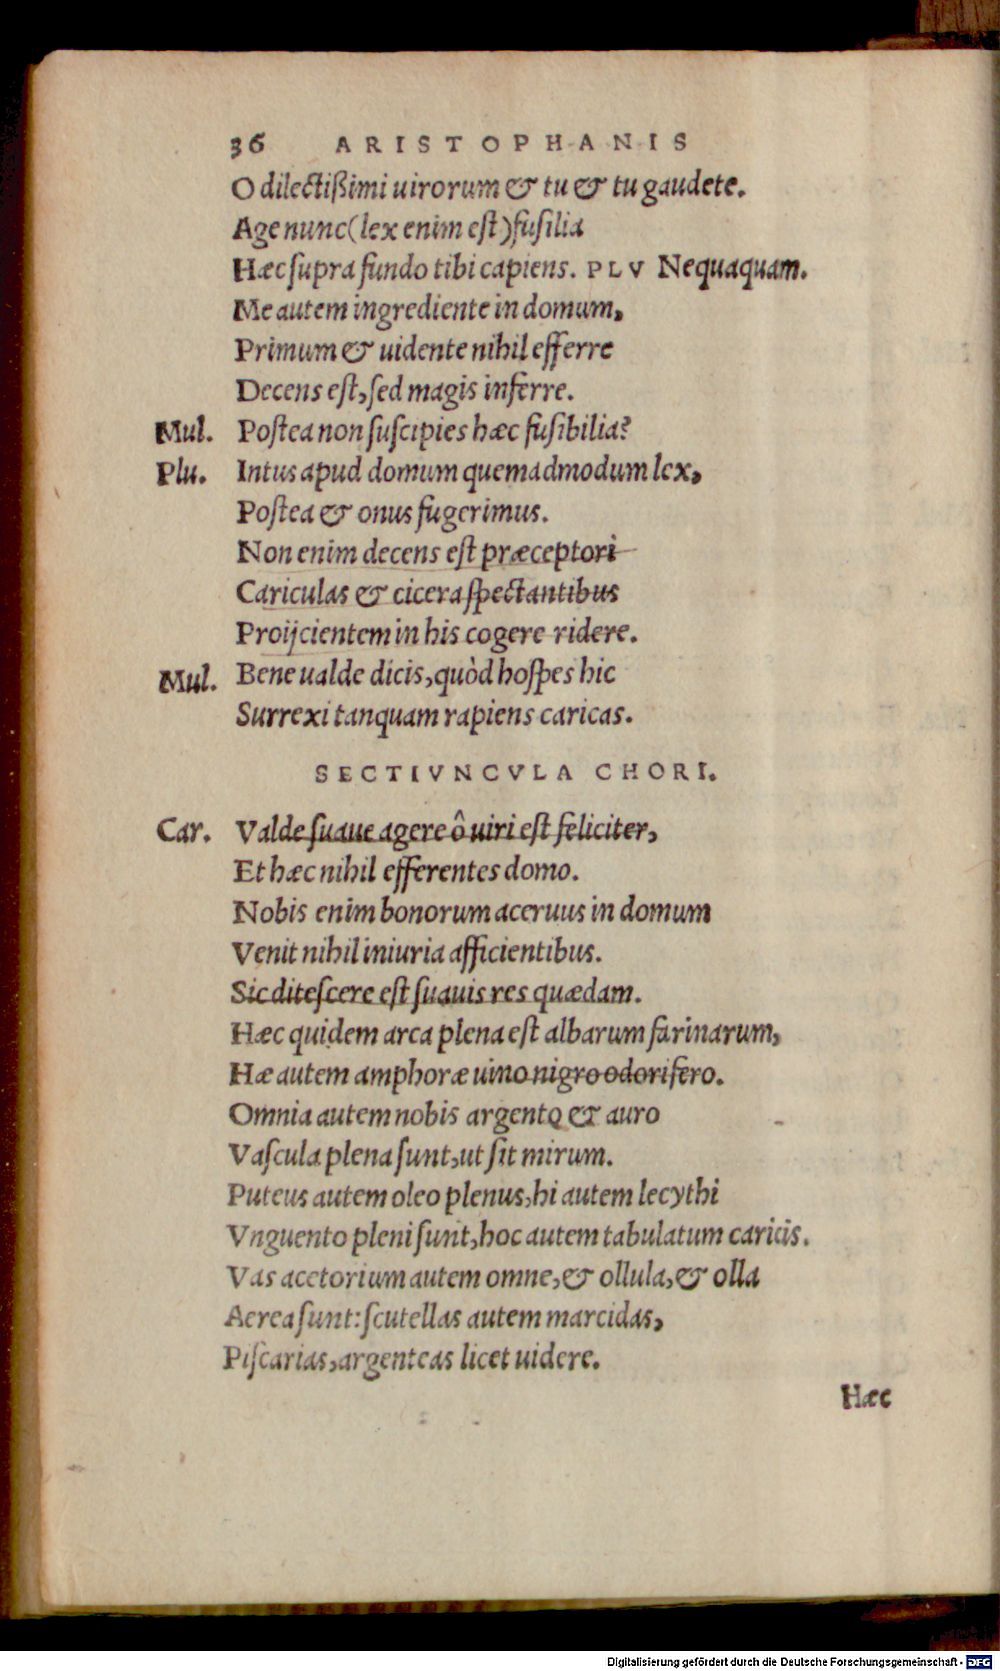 36 ARISTOPHANIS
O dilectißimi uirorum & tu & tu gaudete.
Age nunc (lex enim est) fusilia
Hæc supra fundo tibi capiens. PLV Nequaquam.
Me autem ingrediente in domum,
Primum & uidente nihil efferre
Decens est, sed magis inferre.
Mul. Postea non suscipies hæc fusibilia?
Plu. Intus apud domum quemadmodum lex,
Postea & onus fugerimus.
Non enim decens est præceptori
Cariculas & cicera spectantibus
Proijcientem in his cogere ridere.
Mul. Bene ualde dicis, quòd hospes hic
Surrexi tanquam rapiens caricas.
SECTIVNCVLA CHORI.
Car. Valde suaue agere ô uiri est feliciter,
Et hæc nihil efferentes domo.
Nobis enim bonorum aceruus in domum
Venit nihil iniuria afficientibus.
Sic ditescere est suauis res quædam.
Hæc quidem arca plena est albarum farinarum,
Hæ autem amphoræ uino nigro odorifero.
Omnia autem nobis argento & auro
Vascula plena sunt, ut sit mirum.
Puteus autem oleo plenus, hi autem lecythi
Vnguento pleni sunt, hoc autem tabulatum caricis.
Vas acetorium autem omne, & ollula, & olla
Aerea sunt: scutellas autem marcidas,
Piscarias, argenteas licet uidere.
Hæc
Digitalisierung gefördert durch die Deutsche Forschungsgemeinschaft - DFG